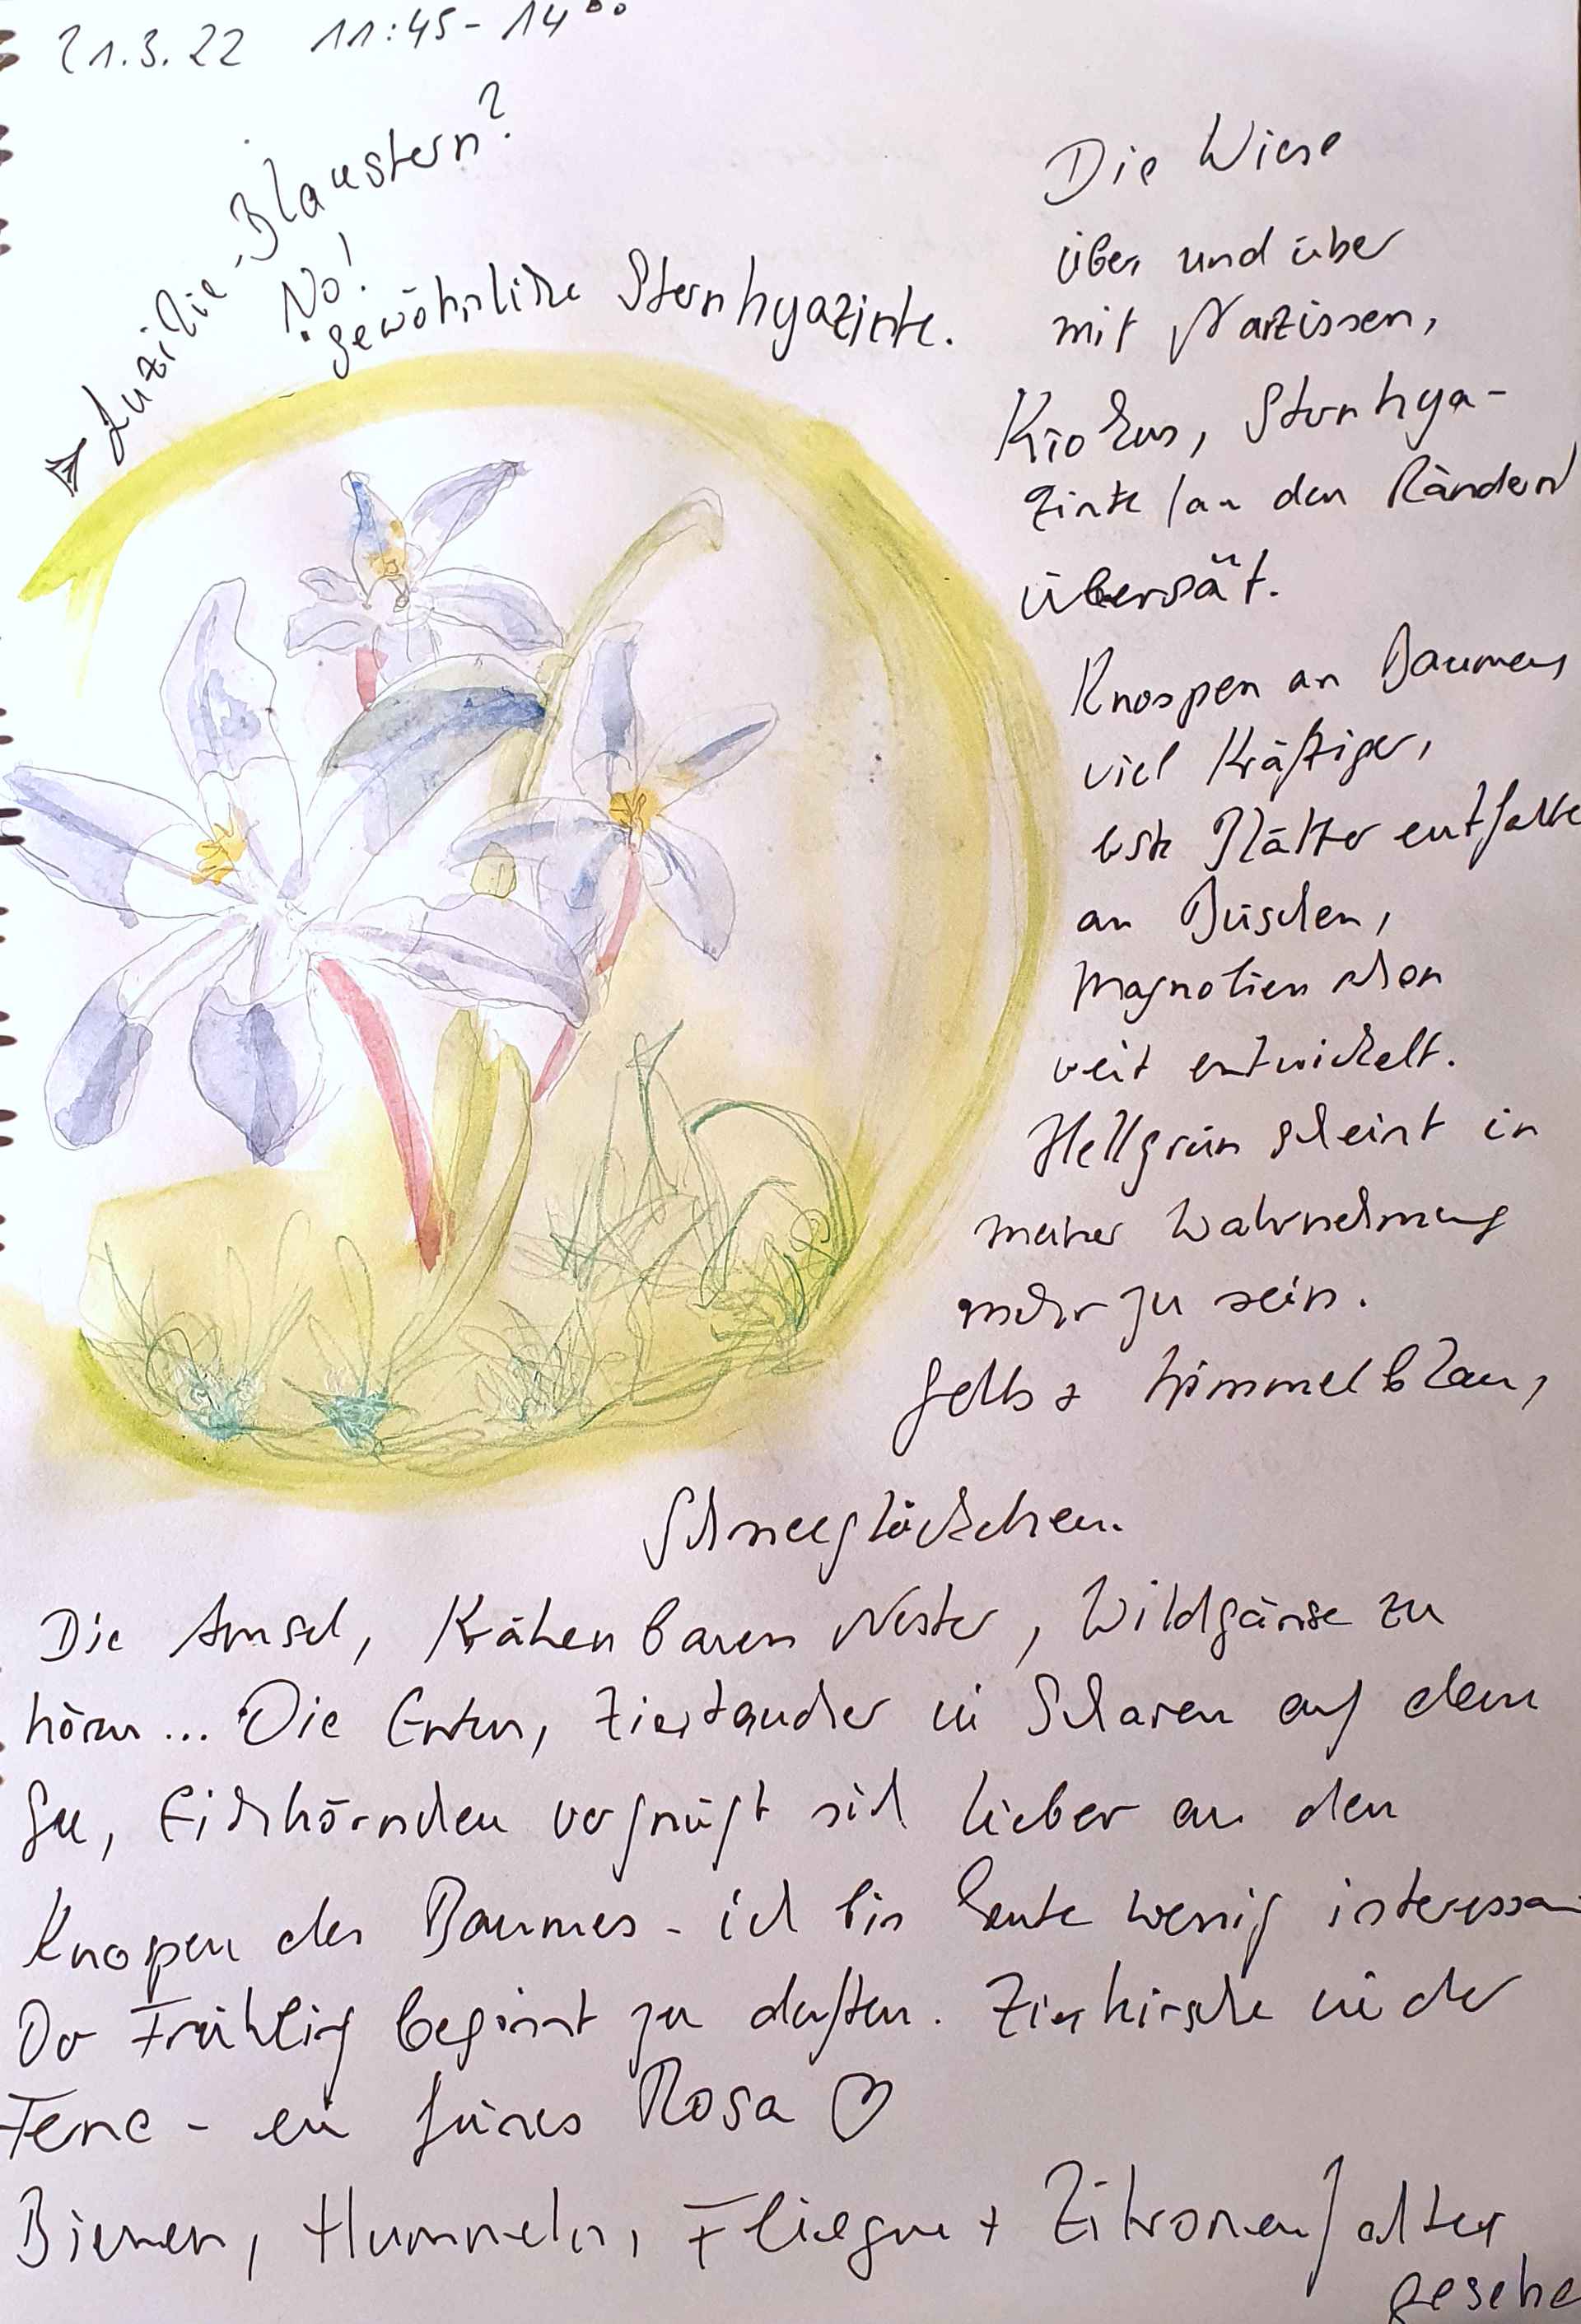 21.3.22 11:45 - 14°°
Luzilie-Blaustern?
No!
gewöhnliche Sternhyazinte.
Die Wiese
über und über
mit Narzissen,
Krokus, Sternhya-
zinte /an den Rändern
übersät.
Knospen an Baumen
viel Kräftiger,
Blätter entfalte
an Büschen,
Magnolien schon
weit entwickelt.
Hellgrün scheint in
meiner Wahrnehmung
mehr zu sein.
Gelb + himmelblau,
Schneeglöckchen.
Die Amsel, Krähen bauen Nester, Wildgänse zu
hören ... Die Enten, in Scharen auf dem
See, Eichhörnchen vergnügt sich lieber an den
Knospen des Baumes - ich bin heute wenig interessan
Der Frühling beginnt zu duften. Zierkirsche in der
Ferne - ein Rosa ♡
Bienen, Hummeln, Fliegen + Zitronenfalter
gesehe